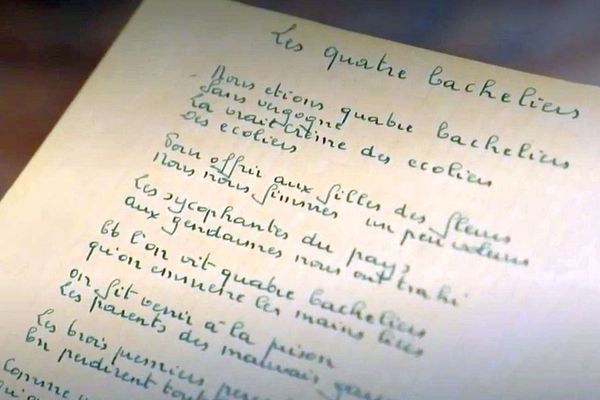 Les quatre bacheliers
Nous etions quatre bacheliers
Sans vergogne
La vrait crème des ecoliers
Des ecoliers
Pour offrir aux filles des fleurs
Nous nous fimmes un peu voleurs
Les sycophantes du pays
aux gendarmes nous ont trahi
Et l'on vit quatre bacheliers
qu'on emmene les mains liées
on fit venir à la prison
Les parents des mauvais
Les trois premiers
En perdirent tout
Comme
qu'